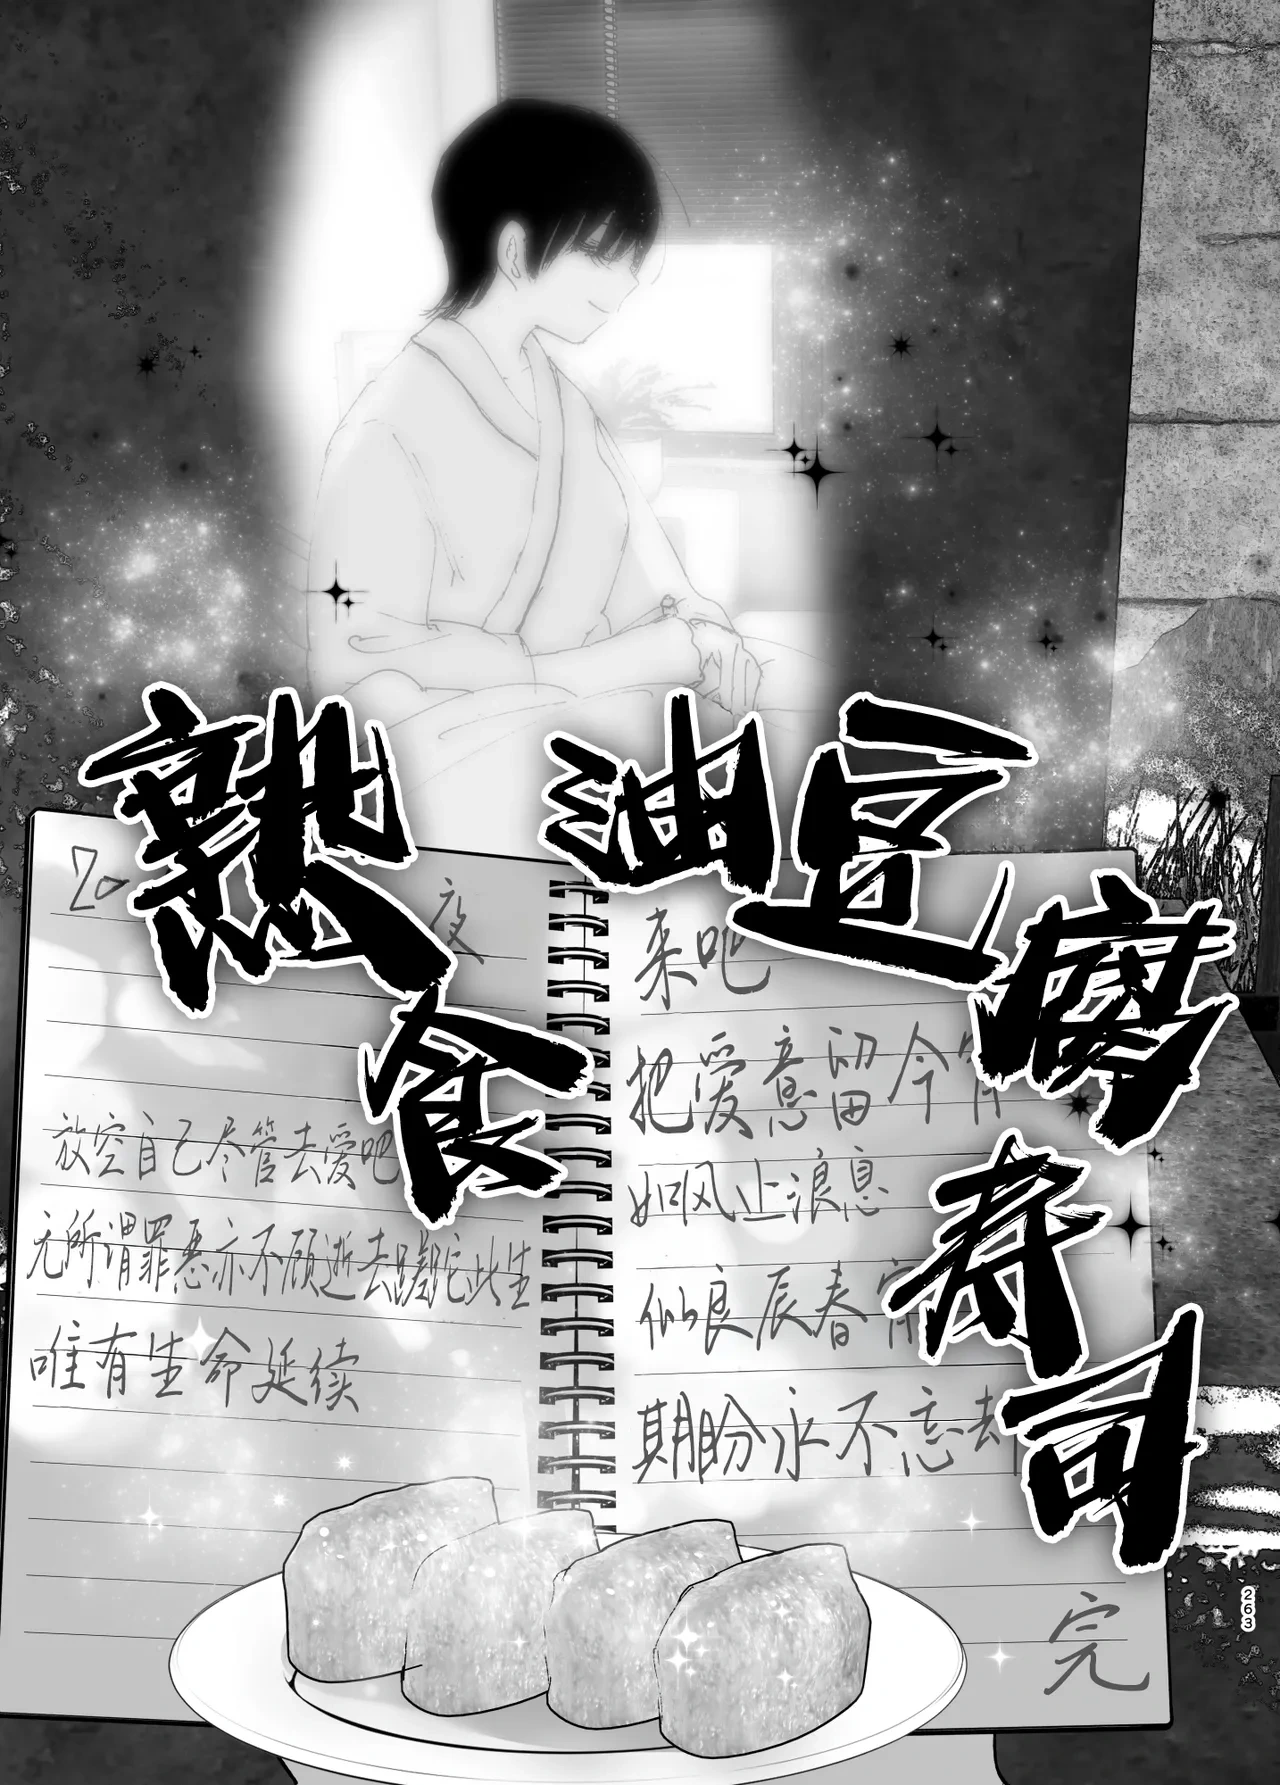 油豆腐
寿司
熟食
20
夜
放空自己尽管去爱吧
无所谓罪恶亦不顾逝去蹉跎此生
唯有生命延续
来吧
把爱意留今宵
如风止浪息
似良辰春宵
期盼永不忘去
完
263